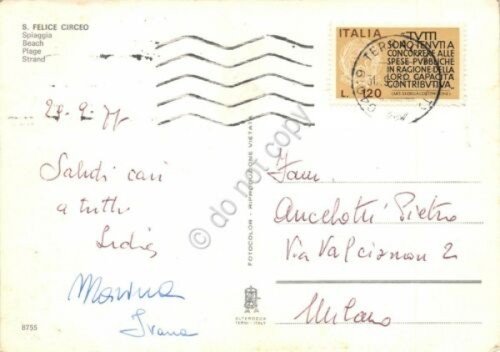 S. FELICE CIRCEO
Spiaggia
Beach
Plage
Strand
29-9-77
Saluti cari
a tutti
Lidia
Marina
Ivana
8755
FOTOCOLOR - RIPRODUZIONE VIETATA
ALTEROCCA
TERNI - ITALY
© do not copy
ITALIA
TUTTI
SONO TENUTI A
CONCORRERE ALLE
SPESE PUBBLICHE
IN RAGIONE DELLA
LORO CAPACITÀ
CONTRIBUTIVA.
(ART. 53 DELLA COSTITUZIONE)
L. 120
04019 TERR
Fam.
Ancelotti Pietro
Via Val
2
Milano